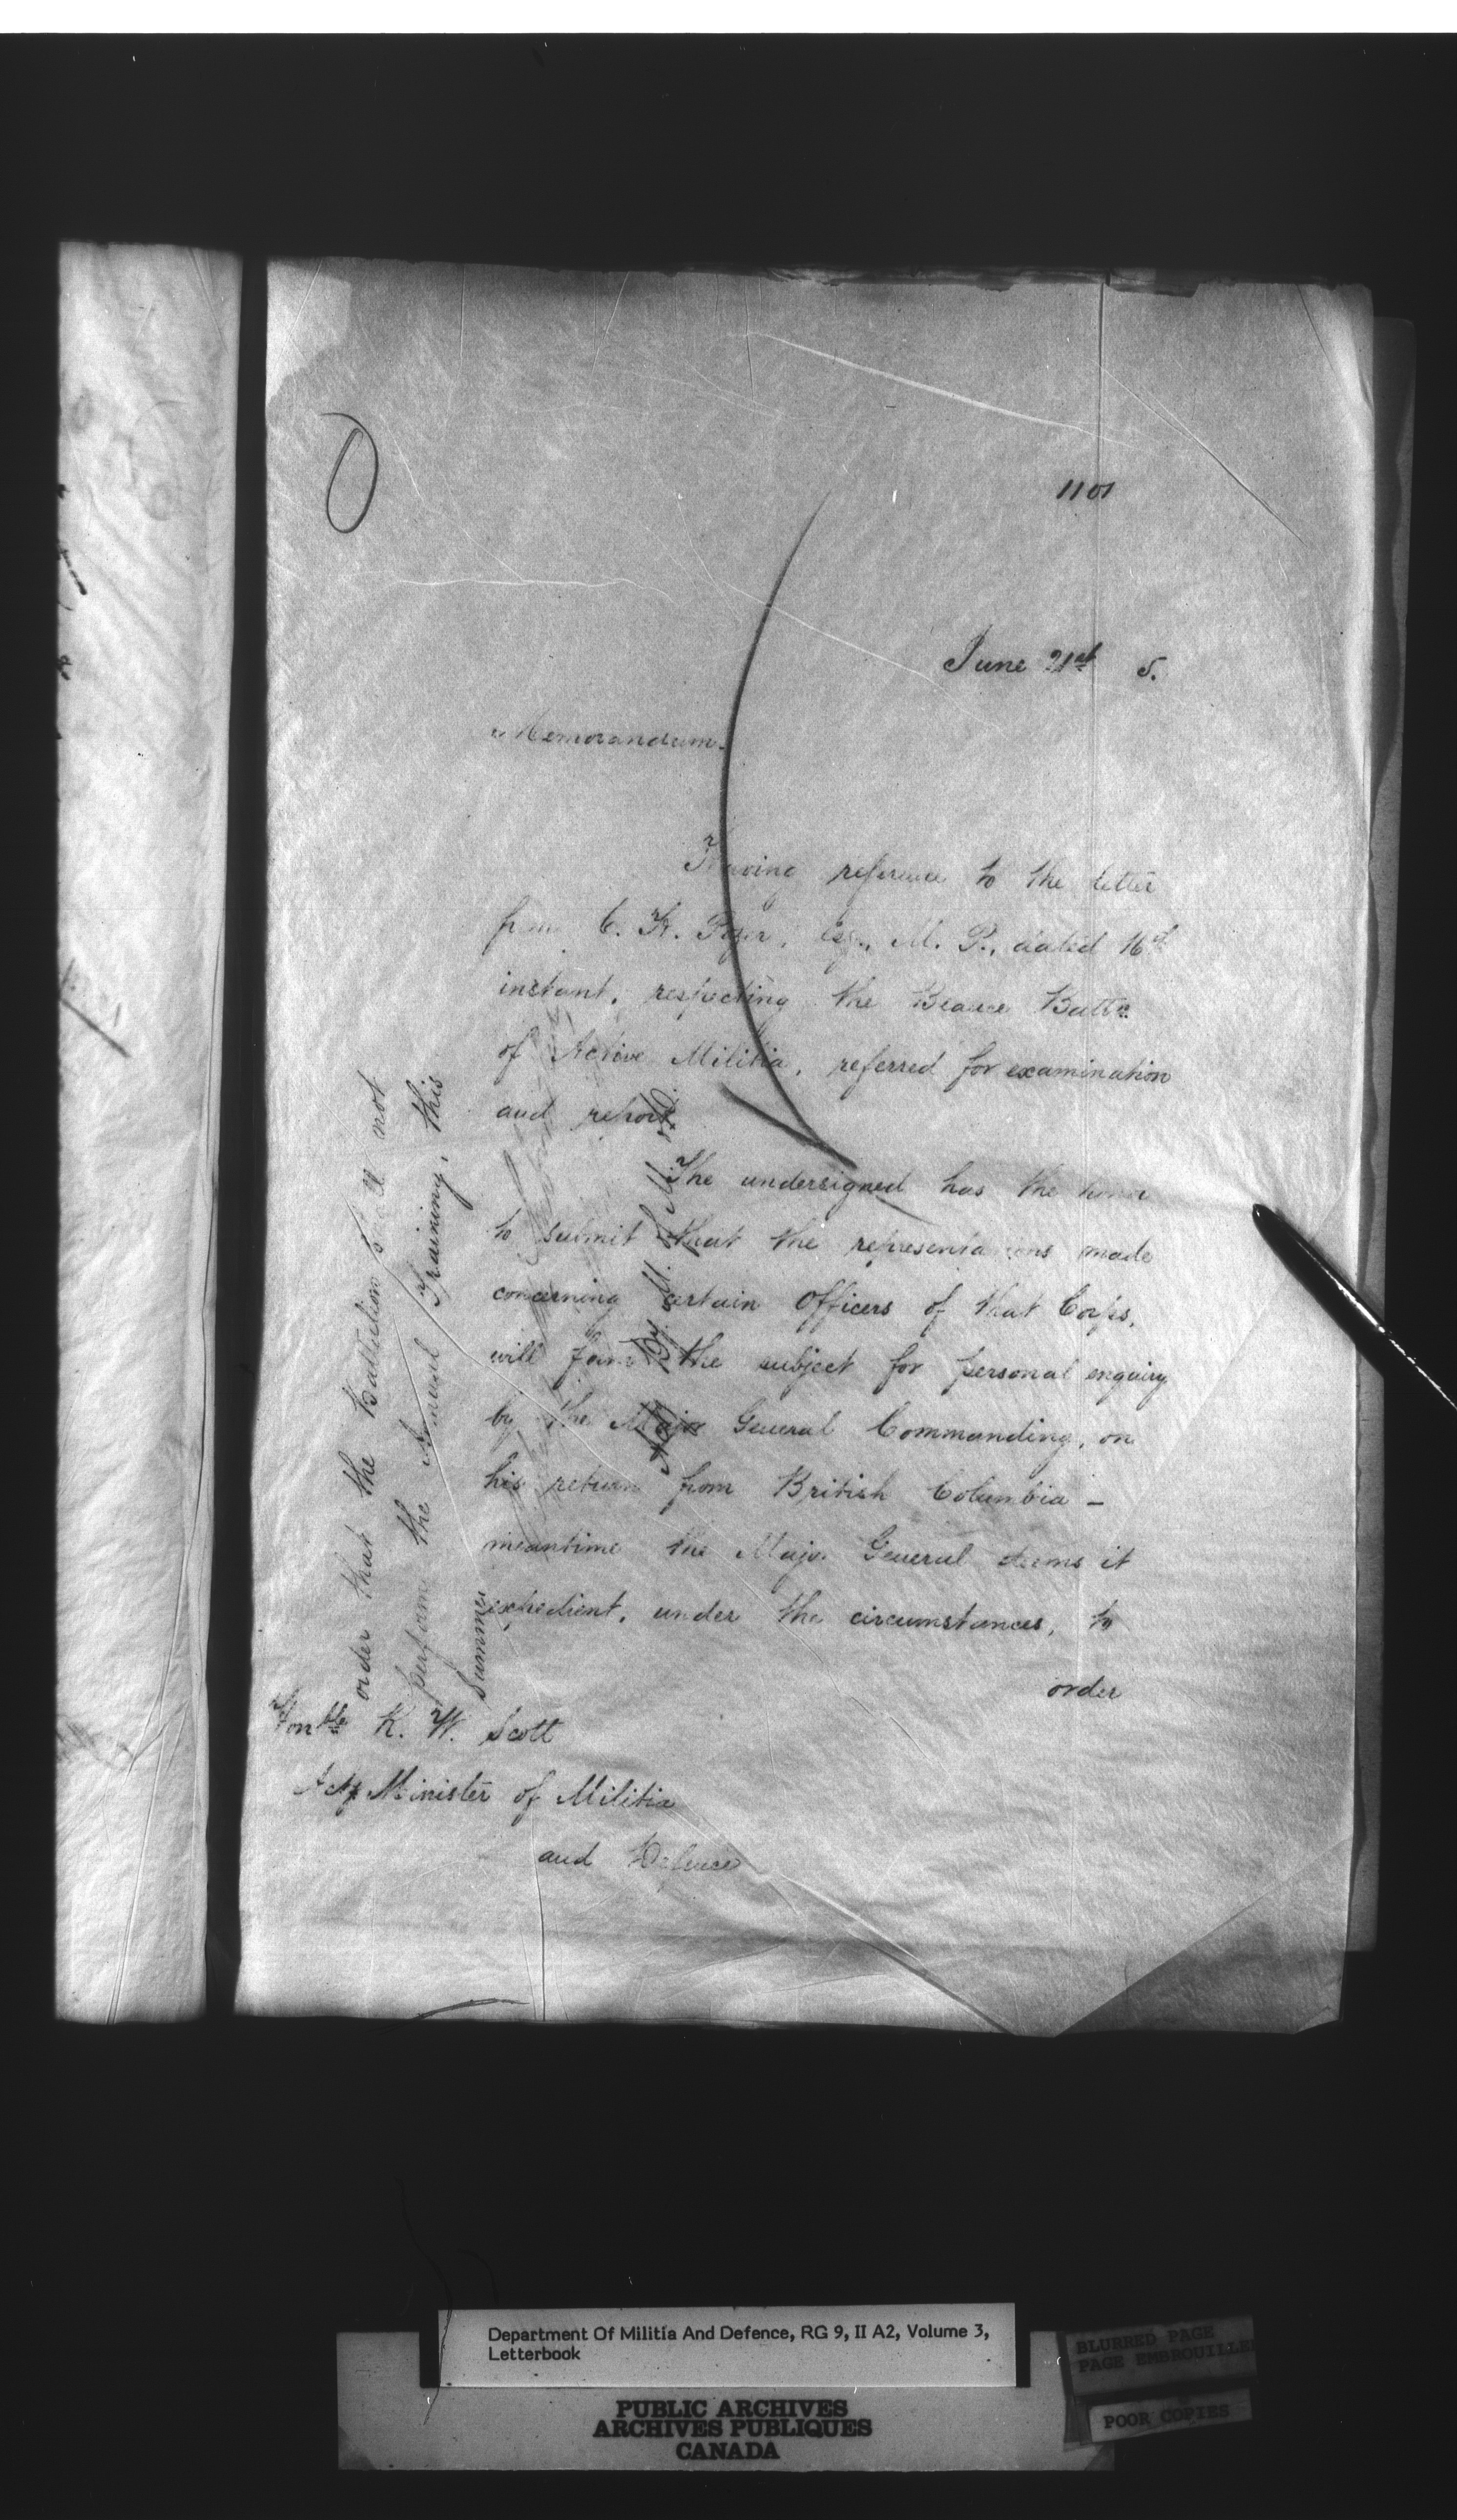 1101
June 21st 5.
Memorandum.
Having reference to the letter
from C. H. Pozer, Esq., M. P., dated 16th
instant, respecting the Beauce Battn.
of Active Militia, referred for examination
and report.
The undersigned has the honor
to submit that the representations made
concerning certain Officers of that Corps,
will form the subject for personal enquiry
by the Major General Commanding, on
his return from British Columbia —
meantime the Major General deems it
expedient, under the circumstances, to
order
Honble R. W. Scott
Actg Minister of Militia
and Defence
order that the Battalion shall not
perform the Annual Training, this
Summer
Department Of Militia And Defence, RG 9, II A2, Volume 3,
Letterbook
PUBLIC ARCHIVES
ARCHIVES PUBLIQUES
CANADA
BLURRED PAGE
PAGE EMBROUILLEE
POOR COPIES